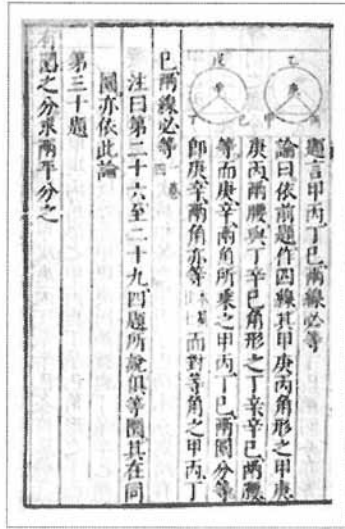 題言甲丙丁巳兩線必等
論曰依前題作四線其甲庚丙角形之甲庚
庚丙兩腰與丁辛巳角形之丁辛辛巳兩腰
等而庚辛兩角所乘之甲丙丁巳兩圜分等
即庚辛兩角亦等 而對等角之甲丙丁
巳兩線必等
注曰第二十六至二十九四題所說俱等圜其在同
圜亦依此論
第三十題
圜之分求兩平分之